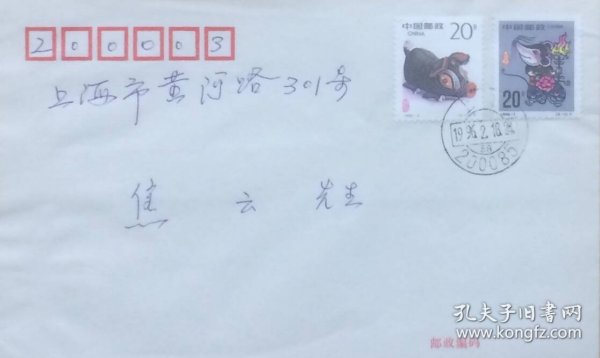 200003
中国邮政
CHINA
20分
中国邮政
20分
上海市黄河路301号
1996.2.10
200085
焦 云 先生
邮政编码
孔夫子旧书网
www.kongfz.com